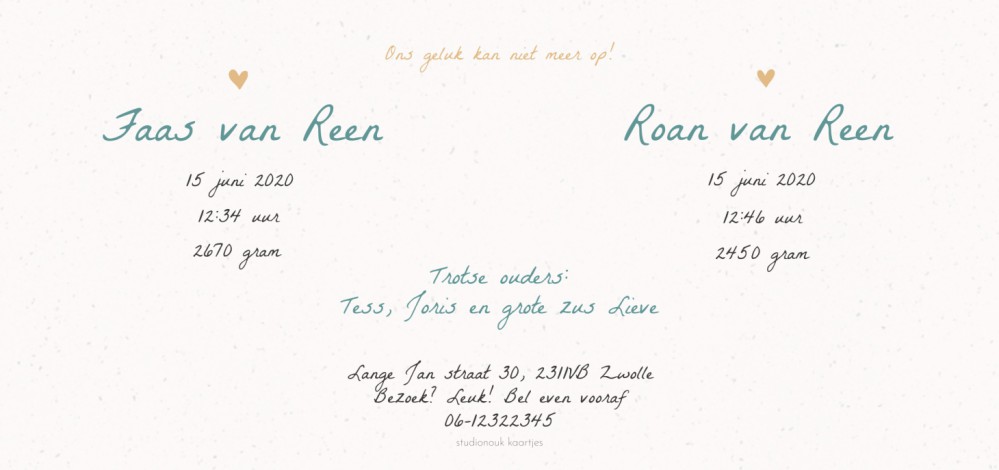 Ons geluk kan niet meer op!
Faas van Reen
15 juni 2020
12:34 uur
2670 gram
Roan van Reen
15 juni 2020
12:46 uur
2450 gram
Trotse ouders:
Tess, Joris en grote zus Lieve
Lange Jan straat 30, 2311VB Zwolle
Bezoek? Leuk! Bel even vooraf
06-12322345
studionouk kaartjes